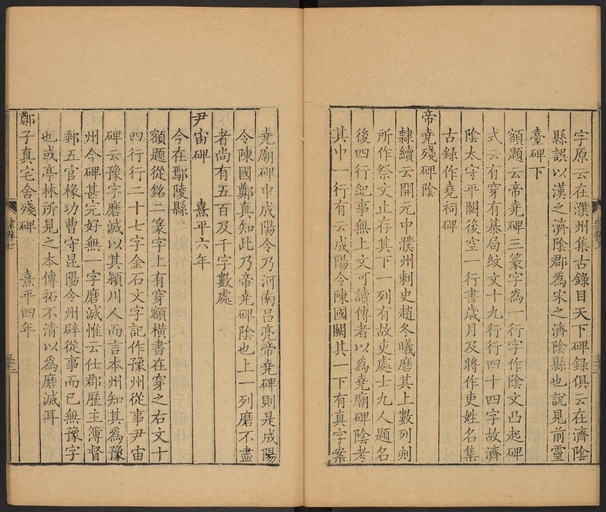 字原云在濮州集古錄目天下碑錄俱云在濟陰
縣誤以漢之濟陰郡為宋之濟陰縣也說見前靈
臺碑下
額題云帝堯碑三篆字為一行字作陰文凸起碑
式云有穿有碁局紋文十九行行四十四字故濟
陰太守平闕後空一行書歲月及將作吏姓名集
古錄作堯祠碑
帝堯殘碑陰
隸續云開元中濮州刺史趙冬曦磨其上數列刻
所作祭文止存其下一列有故吏處士九人題名
後四行紀事無上文可讀傳者以為堯廟碑陰考
其中一行有云成陽令陳國闕其一下有真字案
堯廟碑中成陽令乃河南呂亮帝堯碑則是成陽
令陳國鄭真知此乃帝堯碑陰也上一列磨不盡
者尚有五百及干字數處
尹宙碑 熹平六年
今在鄢陵縣
額題從銘二篆字上有穿額橫書在穿之右文十
四行行二十七字金石文字記作豫州從事尹宙
碑云豫字磨滅以其潁川人而言本州知其為豫
州今碑甚完好無一字磨滅惟云仕郡歷主簿督
郵五官掾功曹守昆陽令州辟從事而已無豫字
也或亭林所見之本傳拓不清以為磨滅耳
鄭子真宅舍殘碑 熹平四年